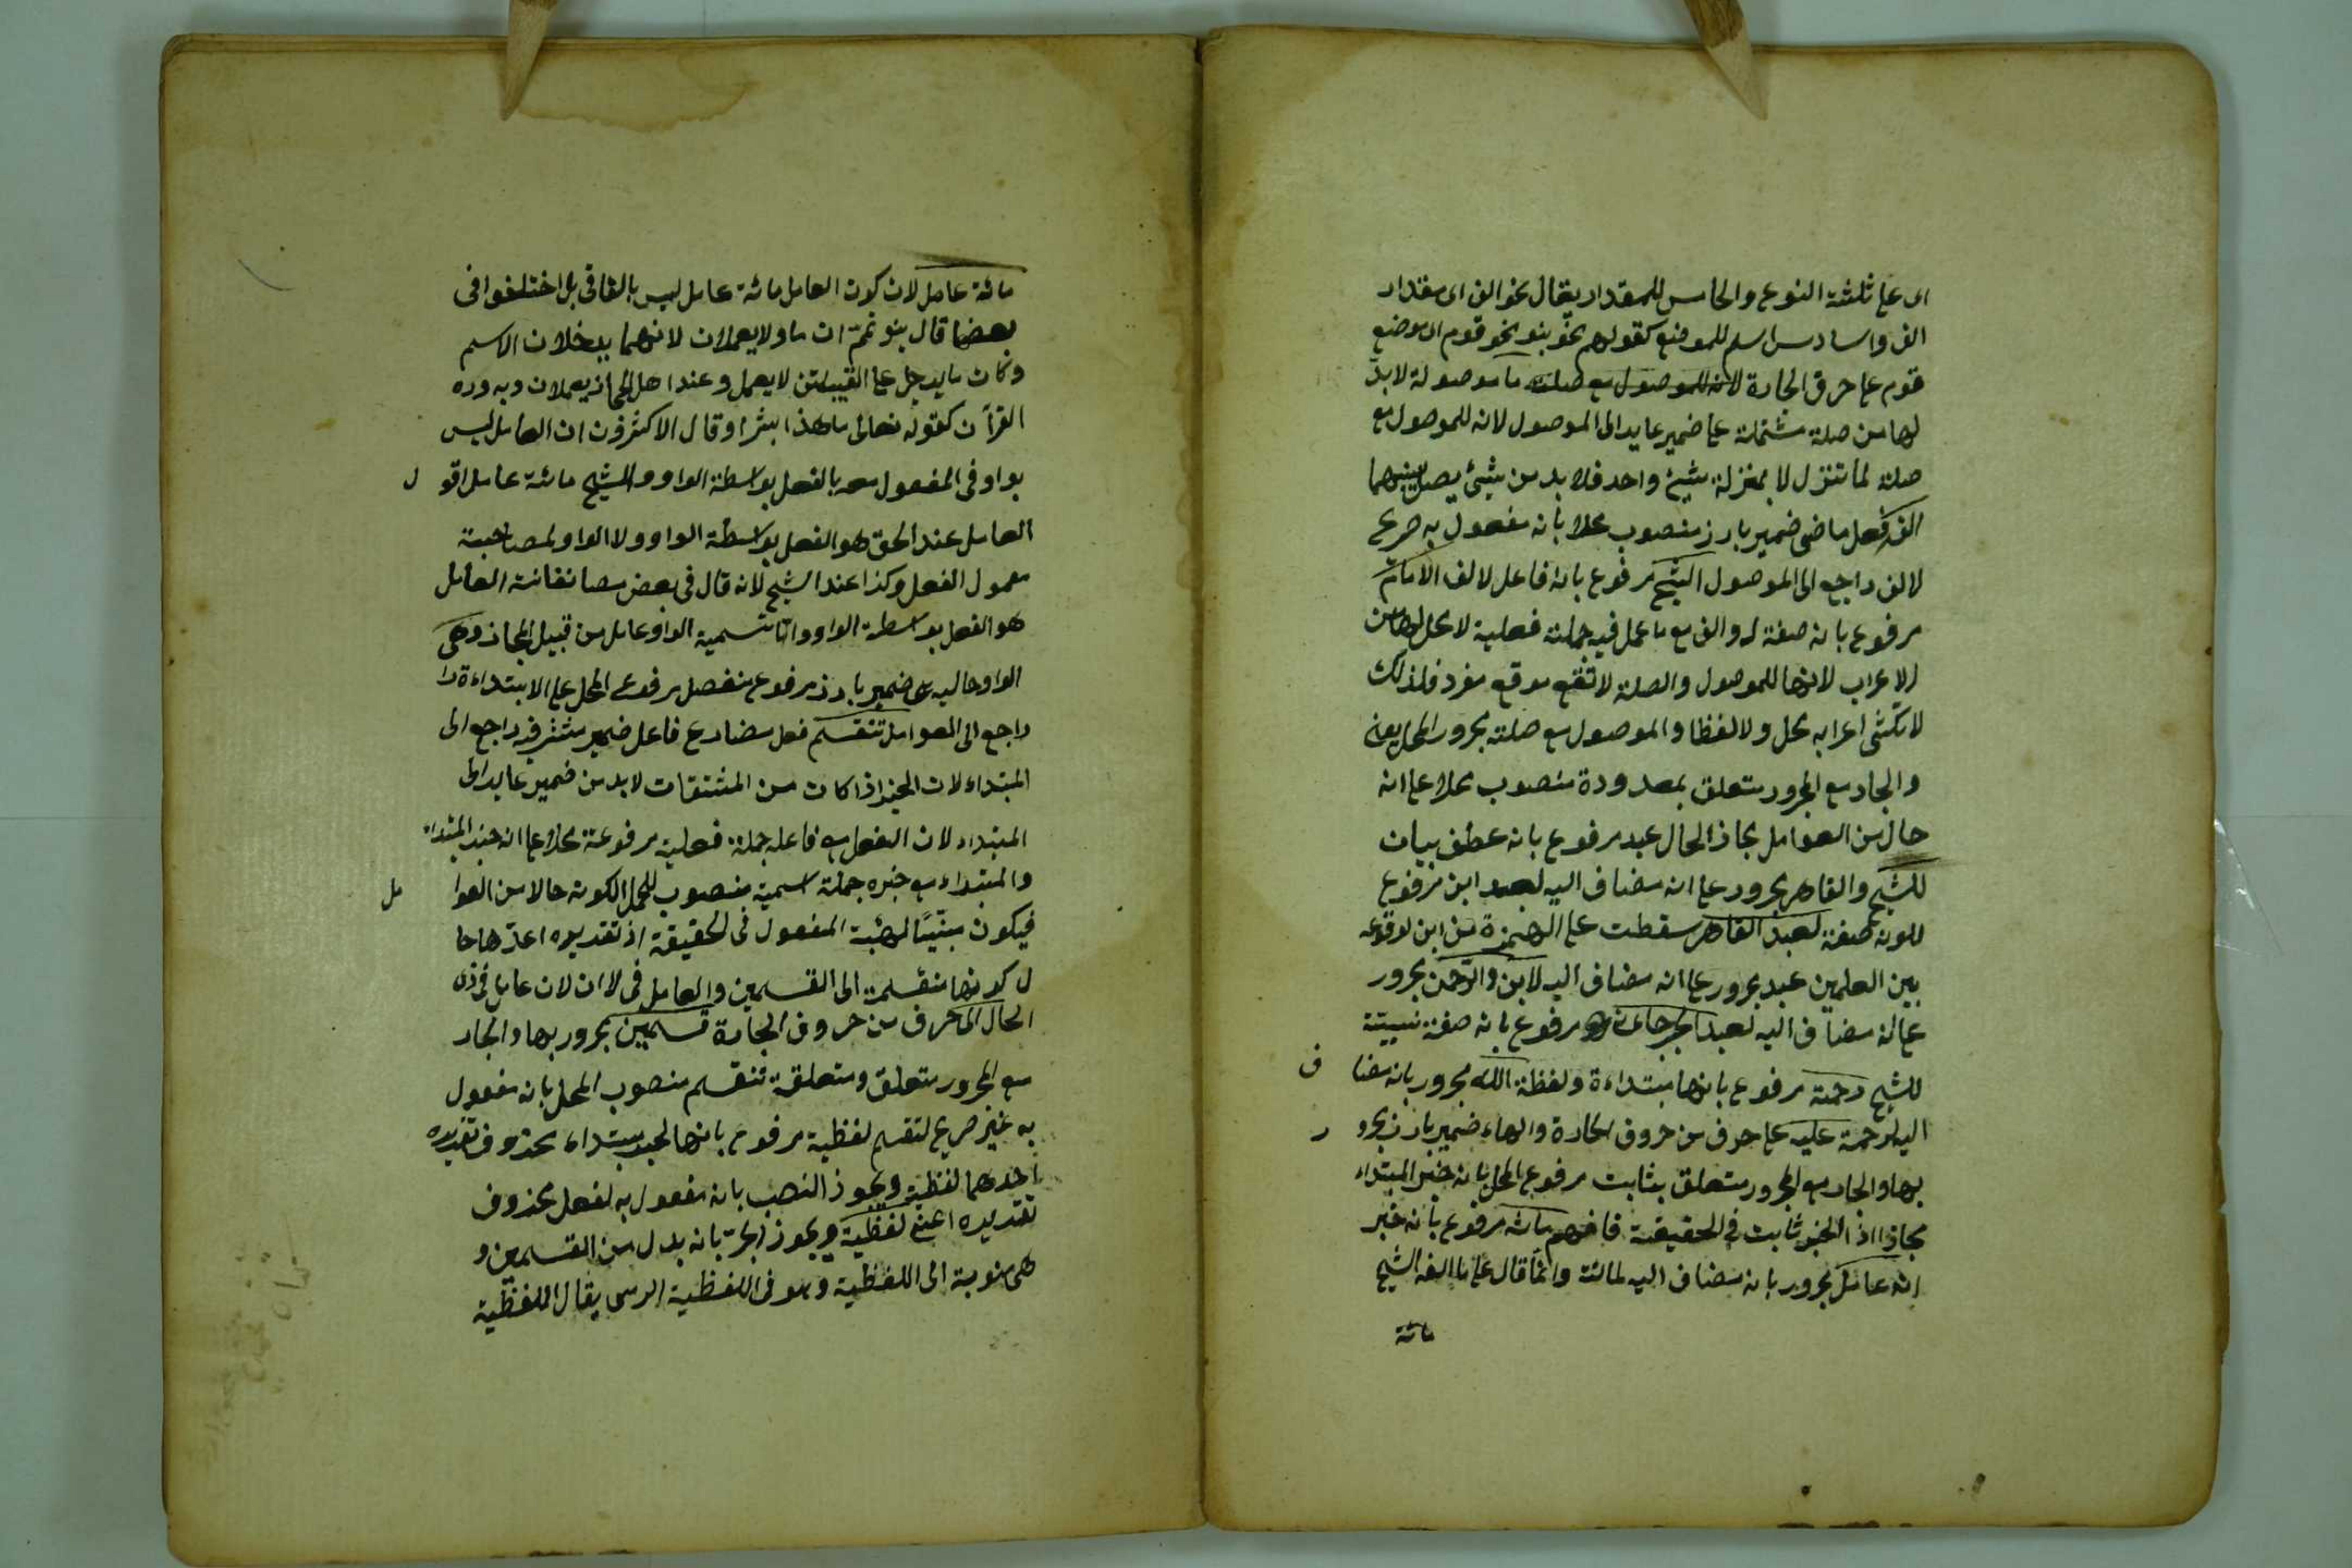 اى على ثلثة النوع والخامس للمقدار يقال نحو الف اى مقدار
الف واسادس اسم للموضع كقولهم نحو بنو نحو قوم اى موضع
قوم على حرف الجارة لانه للموصول مع صلته ما موصولة لابد
لها من صلة مشتملة على ضمير عايد الى الموصول لانه للموصول مع
صلته لما تنزل لا بمنزلة شيئ واحد فلا بد من شيئ يصل بينهما
الف فعل ماضى ضمير بارز منصوب محلا بانه مفعول به صريح
لالف راجع الى الموصول الشيخ مرفوع بانه فاعل لالف الامام
مرفوع بانه صفة له والف مع ما عمل فيه جملة فعلية لا محل لها من
الاعراب لانها للموصول والصلة لا تقع موقع مفرد فلذلك
اعرابه محل ولا لفظا والموصول مع صلته مجرور المحل بعلى
والجار مع المجرور متعلق بمعدودة منصوب محلا على انه
حال من العوامل مجاز الحال عبد مرفوع بانه عطف بيان
للشيخ والقاهر مجرور على انه مضاف اليه لعبد ابن مرفوع
لكونه صفة لعبد القاهر سقطت على الهمزة من ابن لوقوعه
بين العلمين عبد مجرور على انه مضاف اليه لابن والرحمن مجرور
على انه مضاف اليه لعبد الجرجانى مرفوع بانه صفة نسبيتة
للشيخ رحمة مرفوع بانها مبتداءة ولفظة الله مجرور بانه مضا ف
اليه لرحمة عليه على حرف من حروف الجارة والهاء ضمير بارز مجرو ر
بها والجار مع المجرور متعلق بثابت مرفوع المحل بانه خبر المبتداء
مجازا اذ الخبر ثابت فى الحقيقة فافهم مائة مرفوع بانه خبر
انه عامل مجرور بانه مضاف اليه لمائة وانما قال على ما الفه الشيخ
مائة
مائة عامل لان كون العامل مائة عامل ليس باتفاقى بل اختلفوا فى
بعضها قال بنو تميم ان ما ولا يعملان لانهما يدخلان الاسم
وكان ما يدخل على القبيلتن لا يعمل وعند اهل الحجاز يعملان وبه ورد
القرأن كقوله تعالى ما هذا بشرا وقال الاكثرون ان العامل ليس
بواو فى المفعول معه بالفعل بواسطة الواو والشيخ مائة عامل اقو ل
العامل عند الحق هو الفعل بواسطة الواو ولا الواو لمصاحبة
معمول الفعل وكذا عند الشيخ لانه قال فى بعض مصانفاتة العامل
هو الفعل بواسطة الواو واما تسمية الواو عامل من قبيل المجاز وهى
الواو حاليه هى ضمير بارز مرفوع منفصل مرفوع المحل على الابتداءة
راجع الى العوامل تنقسم فعل مضارع فاعل ضمير مستتر فيه راجع الى
المبتداء لان الخبر اذا كان من المشتقات لابد من ضمير عايد الى
المبتداء لان الفعل مع فاعله جملة فعلية مرفوعة محلا على انه خبر المبتداء
والمبتداء مع خبره جملة اسمية منصوب المحل لكونه حالا من العوا مل
فيكون مبينًا لهيئة المفعول فى الحقيقة اذ تقديره اعدها حا
ل كونها منقسمة الى القسمين والعامل فى لا ان لان عامل فى ذى
الحال الى حرف من حروف الجارة قسمين مجرور بها والجار
مع المجرور متعلق ومتعلقة تنقسم منصوب المحل بانه مفعول
به غير صريح لتقسم لفظية مرفوع بانها لخبر مبتداء محذوف تقديره
احدهما لفظية ويجوز النصب بانه مفعول به لفعل محذوف
تقديره اعنى لفظية ويجوز الجر بانه بدل من القسمين و
هى منوبة الى اللفظية وهو فى اللفظية الرمى يقال اللفظية